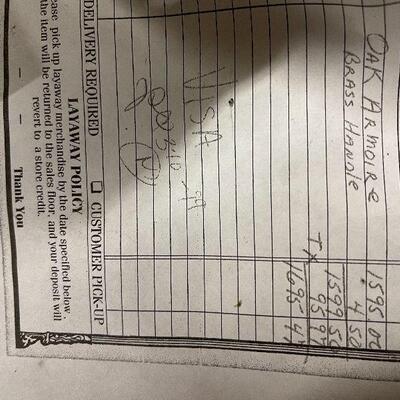 OAK ARMOIRE 1595 00
BRASS HANDLE 4 50
1599 50
TX 95 97
1695 47
VISA
DELIVERY REQUIRED ☐ CUSTOMER PICK-UP
LAYAWAY POLICY
ease pick up layaway merchandise by the date specified below,
the item will be returned to the sales floor, and your deposit will
revert to a store credit.
Thank You